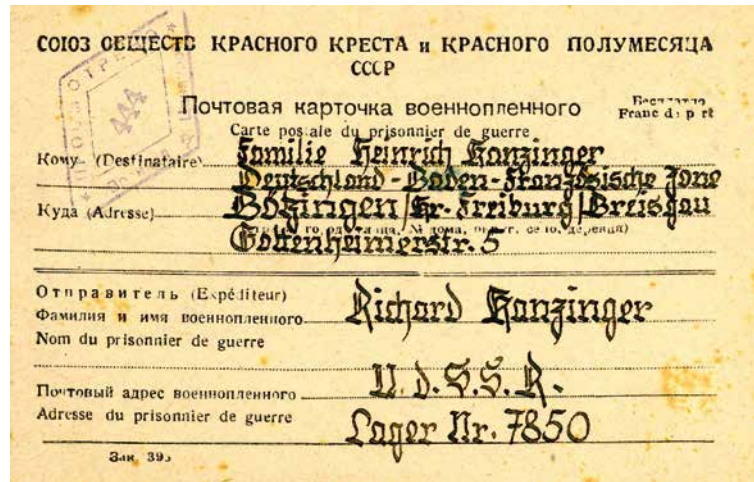 СОЮЗ ОБЩЕСТВ КРАСНОГО КРЕСТА и КРАСНОГО ПОЛУМЕСЯЦА
СССР
Почтовая карточка военнопленного
Бесплатно
Franc de port
Carte postale du prisonnier de guerre
Кому (Destinataire) Familie Heinrich Kanzinger
Deutschland - Baden - Französische Zone
Куда (Adresse) Bötzingen/Kr. Freiburg/Breisgau
дома, село, деревня)
Gottenheimerstr. 5
Отправитель (Expéditeur)
Фамилия и имя военнопленного Richard Kanzinger
Nom du prisonnier de guerre
Почтовый адрес военнопленного U.d.S.S.R.
Adresse du prisonnier de guerre Lager Nr. 7850
Зак. 395
444